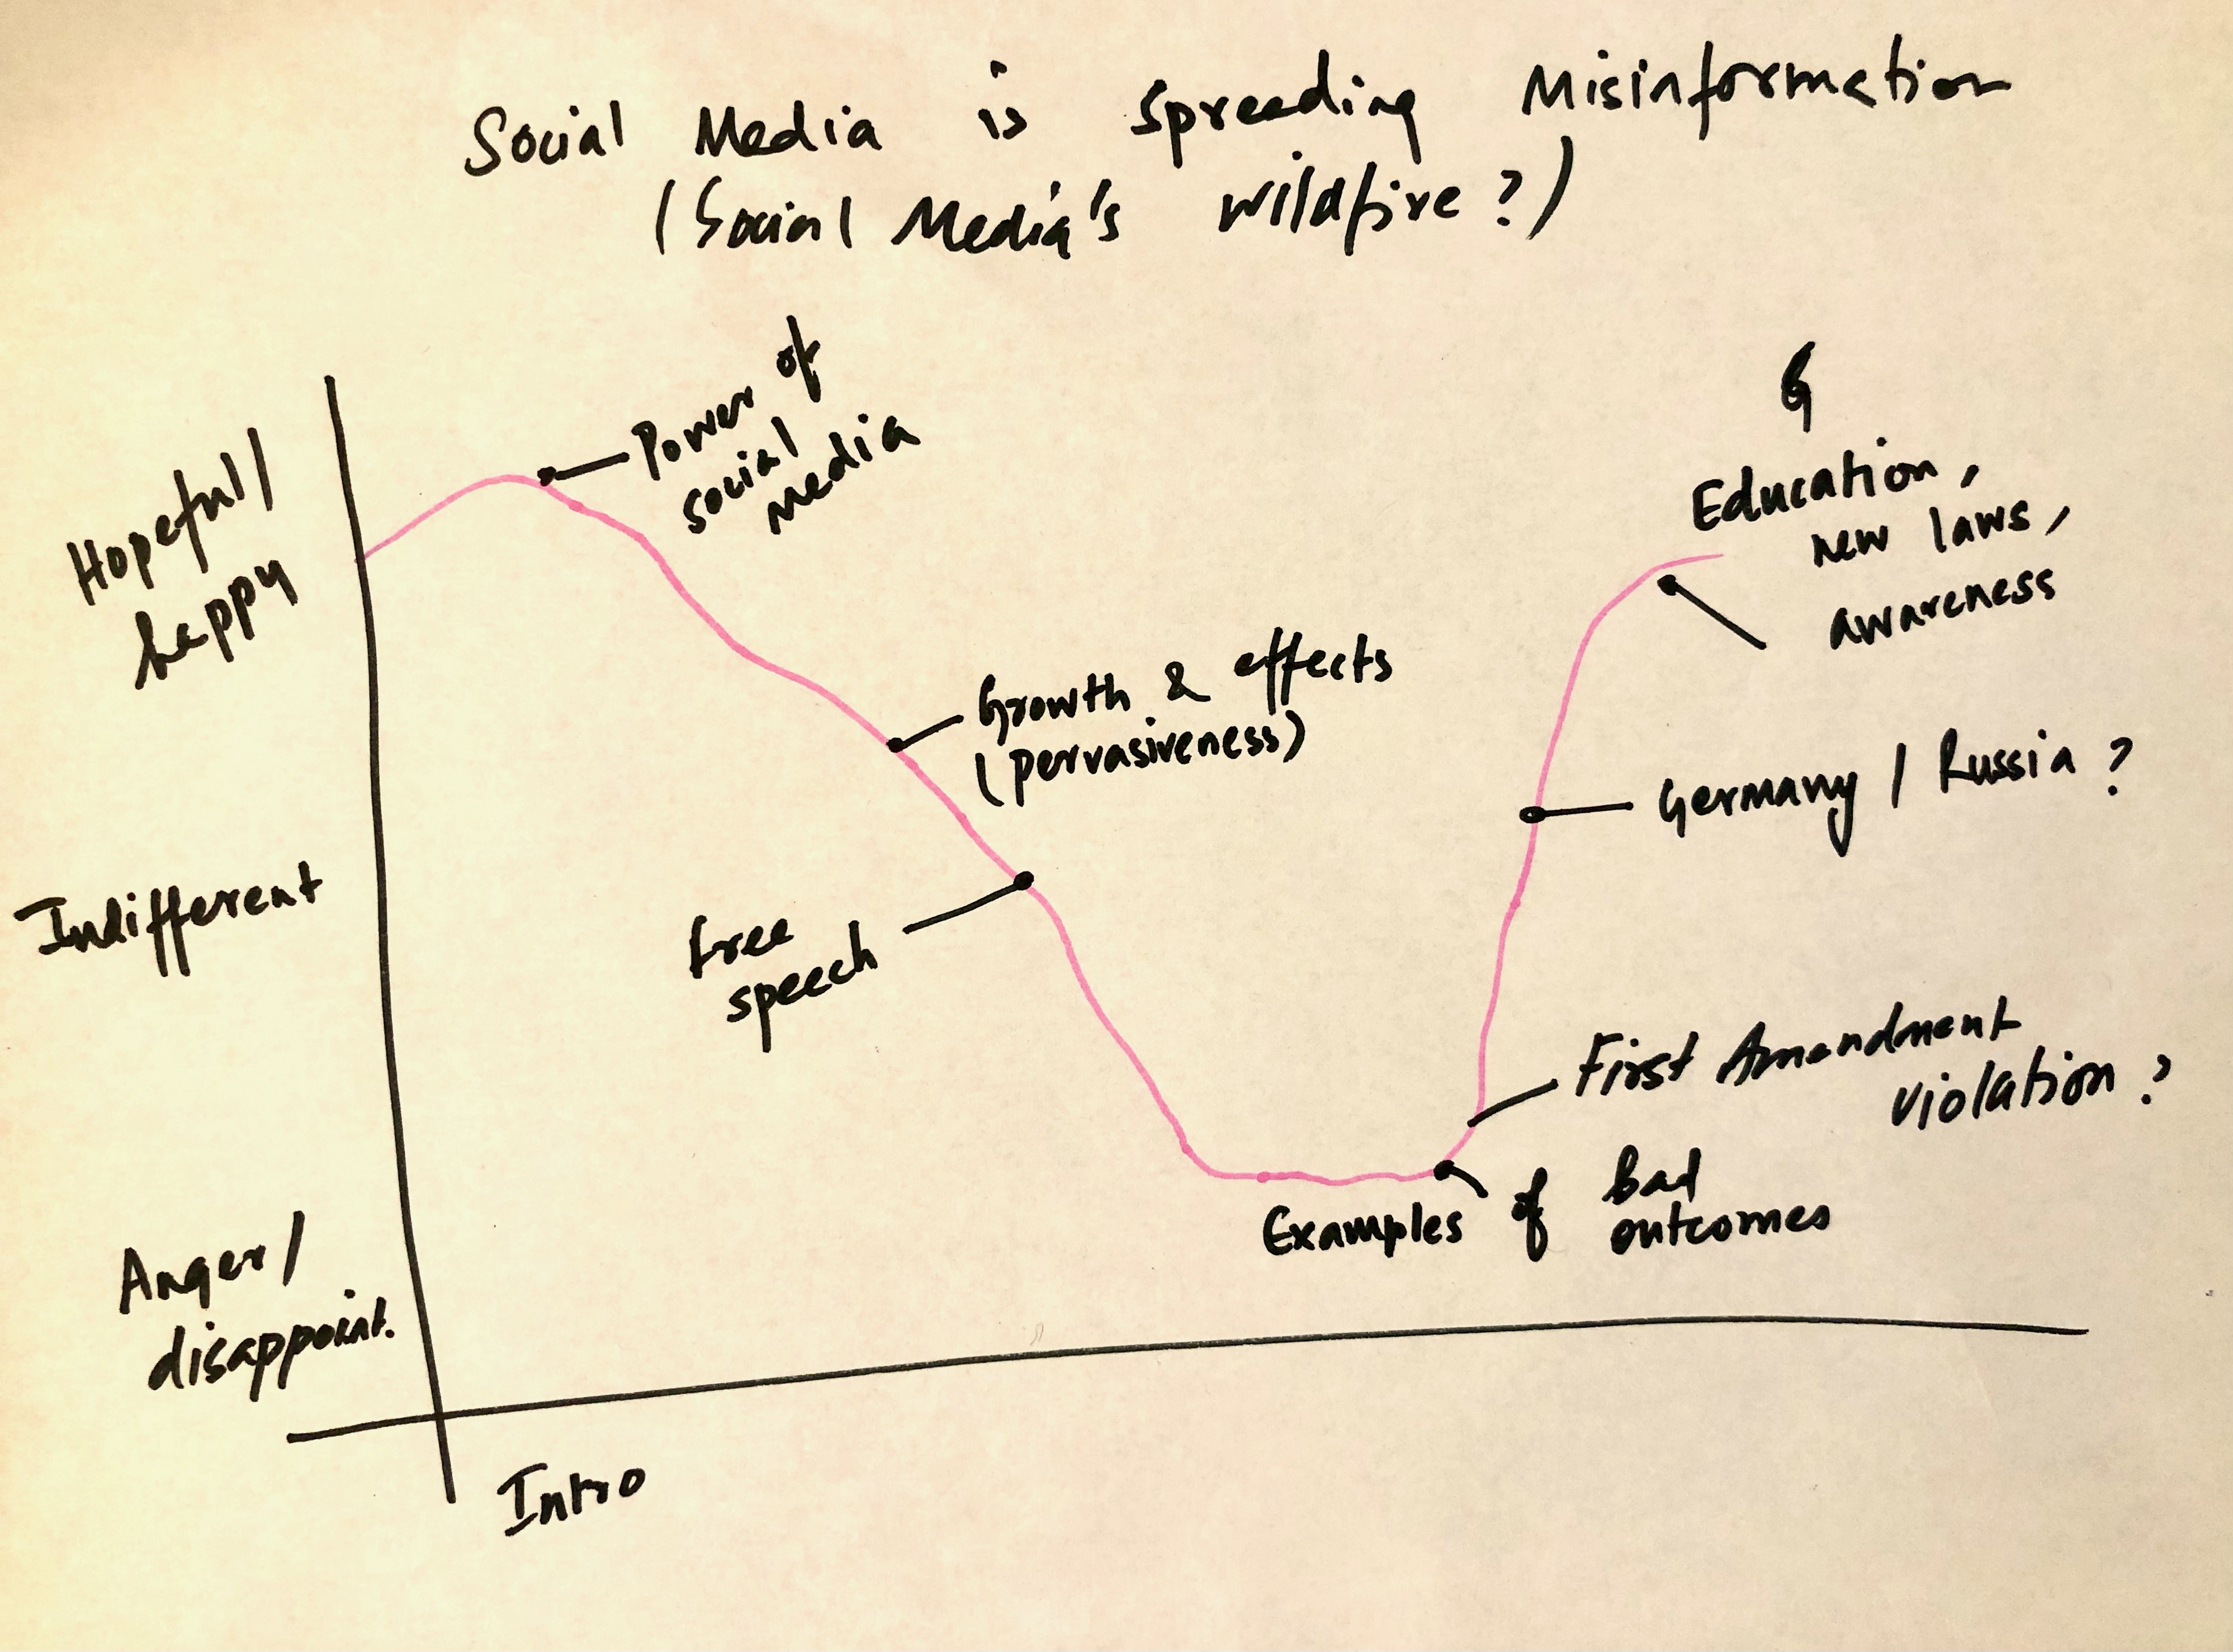 Social Media is spreading Misinformation
(Social Media's wildfire?)
Hopefull/
happy
Indifferent
Anger/
disappoint.
Intro
Power of
social
media
Growth & effects
(pervasiveness)
free
speech
Examples of bad
outcomes
First Amendment
violation?
Germany / Russia?
Education,
new laws,
awareness